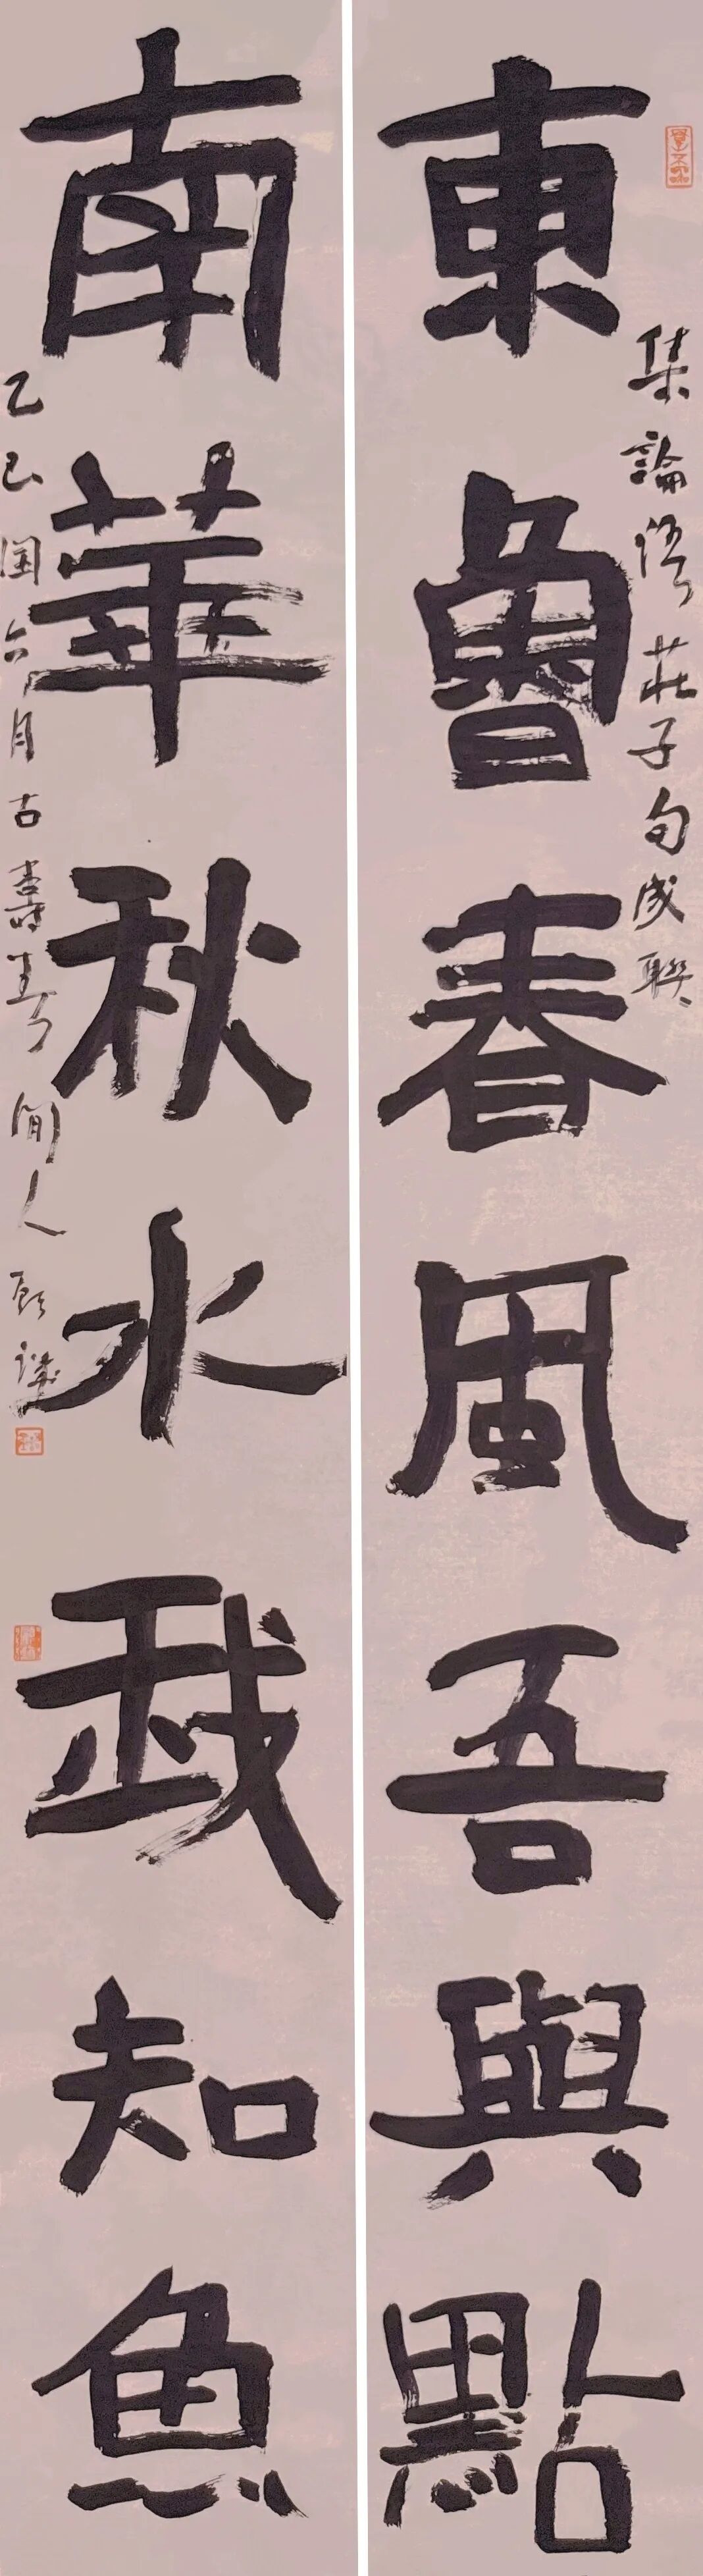 集論語莊子句成聯
東魯春風吾與點
南華秋水我知魚
乙巳閏六月古壽春閒人顧